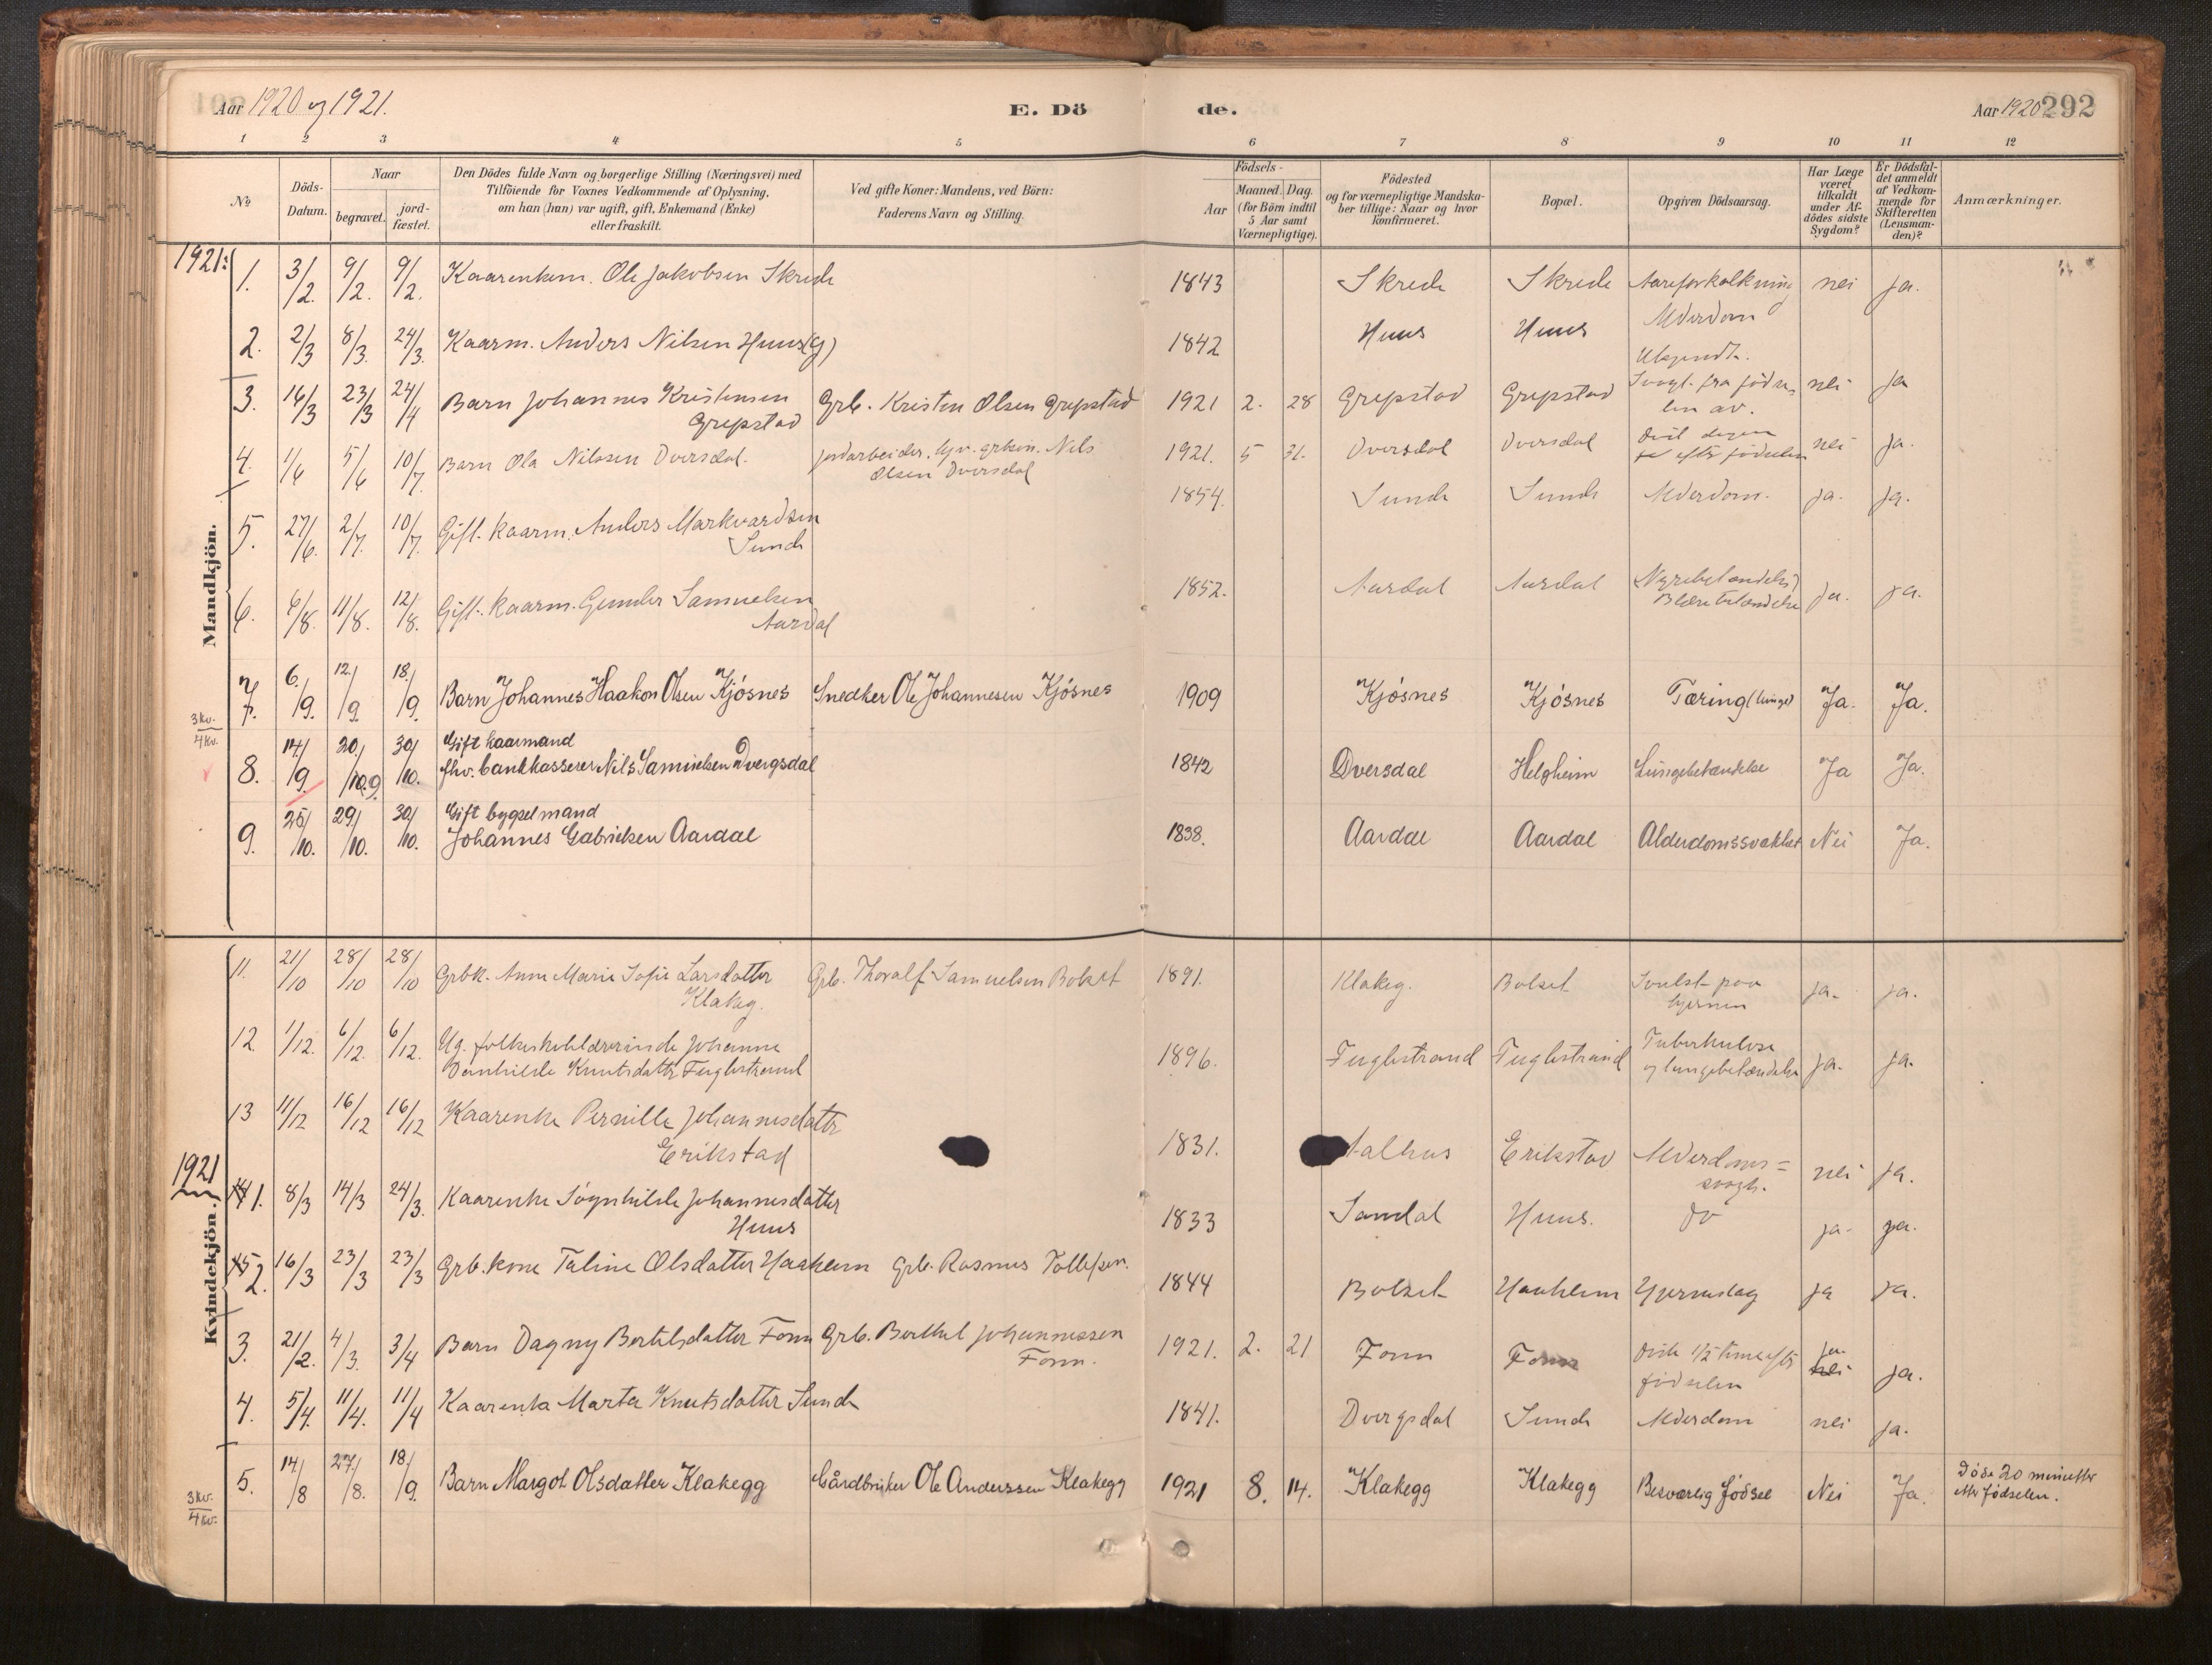 Aar 1920 og 1921.
E. Dö
de.
Aar 1920
292
1 2 3 4 5 6 7 8 9 10 11 12
No
Döds-
Datum.
Naar
begravet.
jord-
fæstet.
Den Dödes fulde Navn og borgerlige Stilling (Næringsvei) med
Tilföiende for Voxnes Vedkommende af Oplysning,
om han (hun) var ugift, gift, Enkemand (Enke)
eller fraskilt.
Ved gifte Koner: Mandens, ved Börn:
Faderens Navn og Stilling.
Födsels-
Aar
Maaned. Dag.
(for Börn indtil
5 Aar samt
Værnepligtige).
Födested
og for værnepligtige Mandska-
ber tillige: Naar og hvor
konfirmeret.
Bopæl.
Opgiven Dödsaarsag.
Har Læge
været
tilkaldt
under Af-
dödes sidste
Sygdom?
Er Dödsfal-
det anmeldt
af Vedkom-
mende for
Skifteretten
(Lensman-
den)?
Anmærkninger.
Mandkjön.
1921:
1. 3/2. 9/2. 9/2. Kaarenkem. Ole Jakobsen Skrede 1843 Skrede Skrede Aareforkalkning nei ja.
2. 2/3 8/3. 24/3. Kaarm. Anders Nilsen Huus (g) 1842 Huus Huus Alderdom
3. 16/3 23/3 24/4 Barn Johannes Kristensen Grb. Kristen Olsen Grepstad 1921 2. 28 Grepstad Grepstad Svagl. fra födse- nei ja
Grepstad len av.
4. 1/6 5/6 10/7. Barn Ola Nilssen Dversdal. Jordarbeider, Nils 1921. 5 31. Dversdal Dversdal nei ja.
Olsen Dversdal efter födselen
5. 27/6. 2/7. 10/7. Gift. kaarm. Anders Markvardsen 1854. Sunde Sunde Alderdom. ja. ja.
Sunde
6. 6/8. 11/8. 12/8. Gift. kaarm. Gunder Samuelsen 1852. Aardal Aardal Nyrebetændelse ja. ja.
Aardal Blærebetændelse
7. 6./9. 12./9. 18./9. Barn Johannes Haakon Olsen Kjösnes Snedker Ole Johannesen Kjösnes 1909 Kjösnes Kjösnes Tæring (lunge) Ja. Ja.
3 kv.
4 kv.
Gift kaarmand
8. 14/9. 20/10.9 30/10. fhv. bankkasserer Nils Samuelsen Dvergsdal 1842 Dversdal Helgheim Lungebetændelse Ja Ja.
Gift bygselmand
9. 25/10. 29/10. 30/10. Johannes Gabrielsen Aardal 1838. Aardal Aardal Alderdomssvakhet Nei Ja.
Kvindekjön.
11. 21/10 28/10 28/10 Grbk. Anne Marie Sofie Larsdatter Grb. Thoralf Samuelsen Bolset 1891. Klakeg. Bolset Svulst paa ja. ja.
Klakeg. hjernen
12. 1/12. 6/12. 6/12. Ug. folkeskolelærerinde Johanne 1896. Fuglestrand Fuglestrand Tuberkulose ja. ja.
Knutsdatter Fuglestrand og lungebetændelse
13 11/12 16/12 16/12 Kaarenke Pernille Johannesdatter 1831. Aalhus Erikstad Alderdoms= nei ja.
Erikstad svagh.
1921
14 1. 8/3 14/3 24/3. Kaarenke Søgnhilde Johannesdatter 1833 Sandal Huus. do ja. ja.
Huus
15 2. 16/3 23/3 23/3 Grb.kone Taline Olsdatter Haaheim Grb. Rasmus Tollefsen. 1844 Bolset Haaheim Hjerneslag ja ja.
3. 21/2. 4/3. 3/4 Barn Dagny Bertelsdatter Fonn Grb. Berthel Johannessen 1921. 2. 21 Fonn Fonn döde 1/2 time efter ja. nei ja.
Fonn. födselen
4. 5/4. 11/4. 11/4 Kaarenka Marta Knutsdatter Sunde 1841. Dvergsdal Sunde Alderdom nei ja.
5. 14/8 27/8. 18/9. Barn Margot Olsdatter Klakegg Gårdbruker Ole Anderssen Klakegg 1921 8. 14. Klakegg Klakegg Besværlig födsel Nei Ja. Döde 20 minutter
efter födselen.
3 kv.
4 kv.